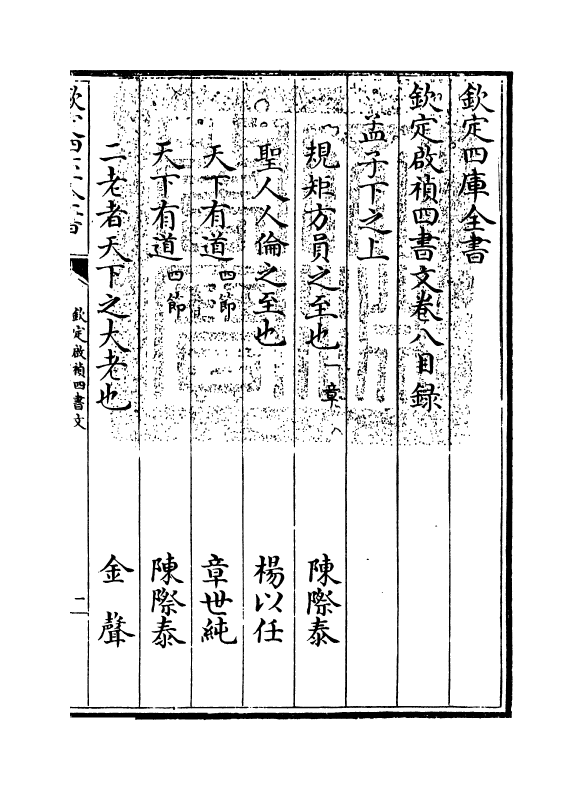 欽定四庫全書
欽定啟禎四書文卷八目録
孟子下之上
規矩方員之至也一章 陳際泰
聖人人倫之至也 楊以任
天下有道四節 章世純
天下有道四節 陳際泰
二老者天下之大老也 金聲
欽定啟禎四書文
二